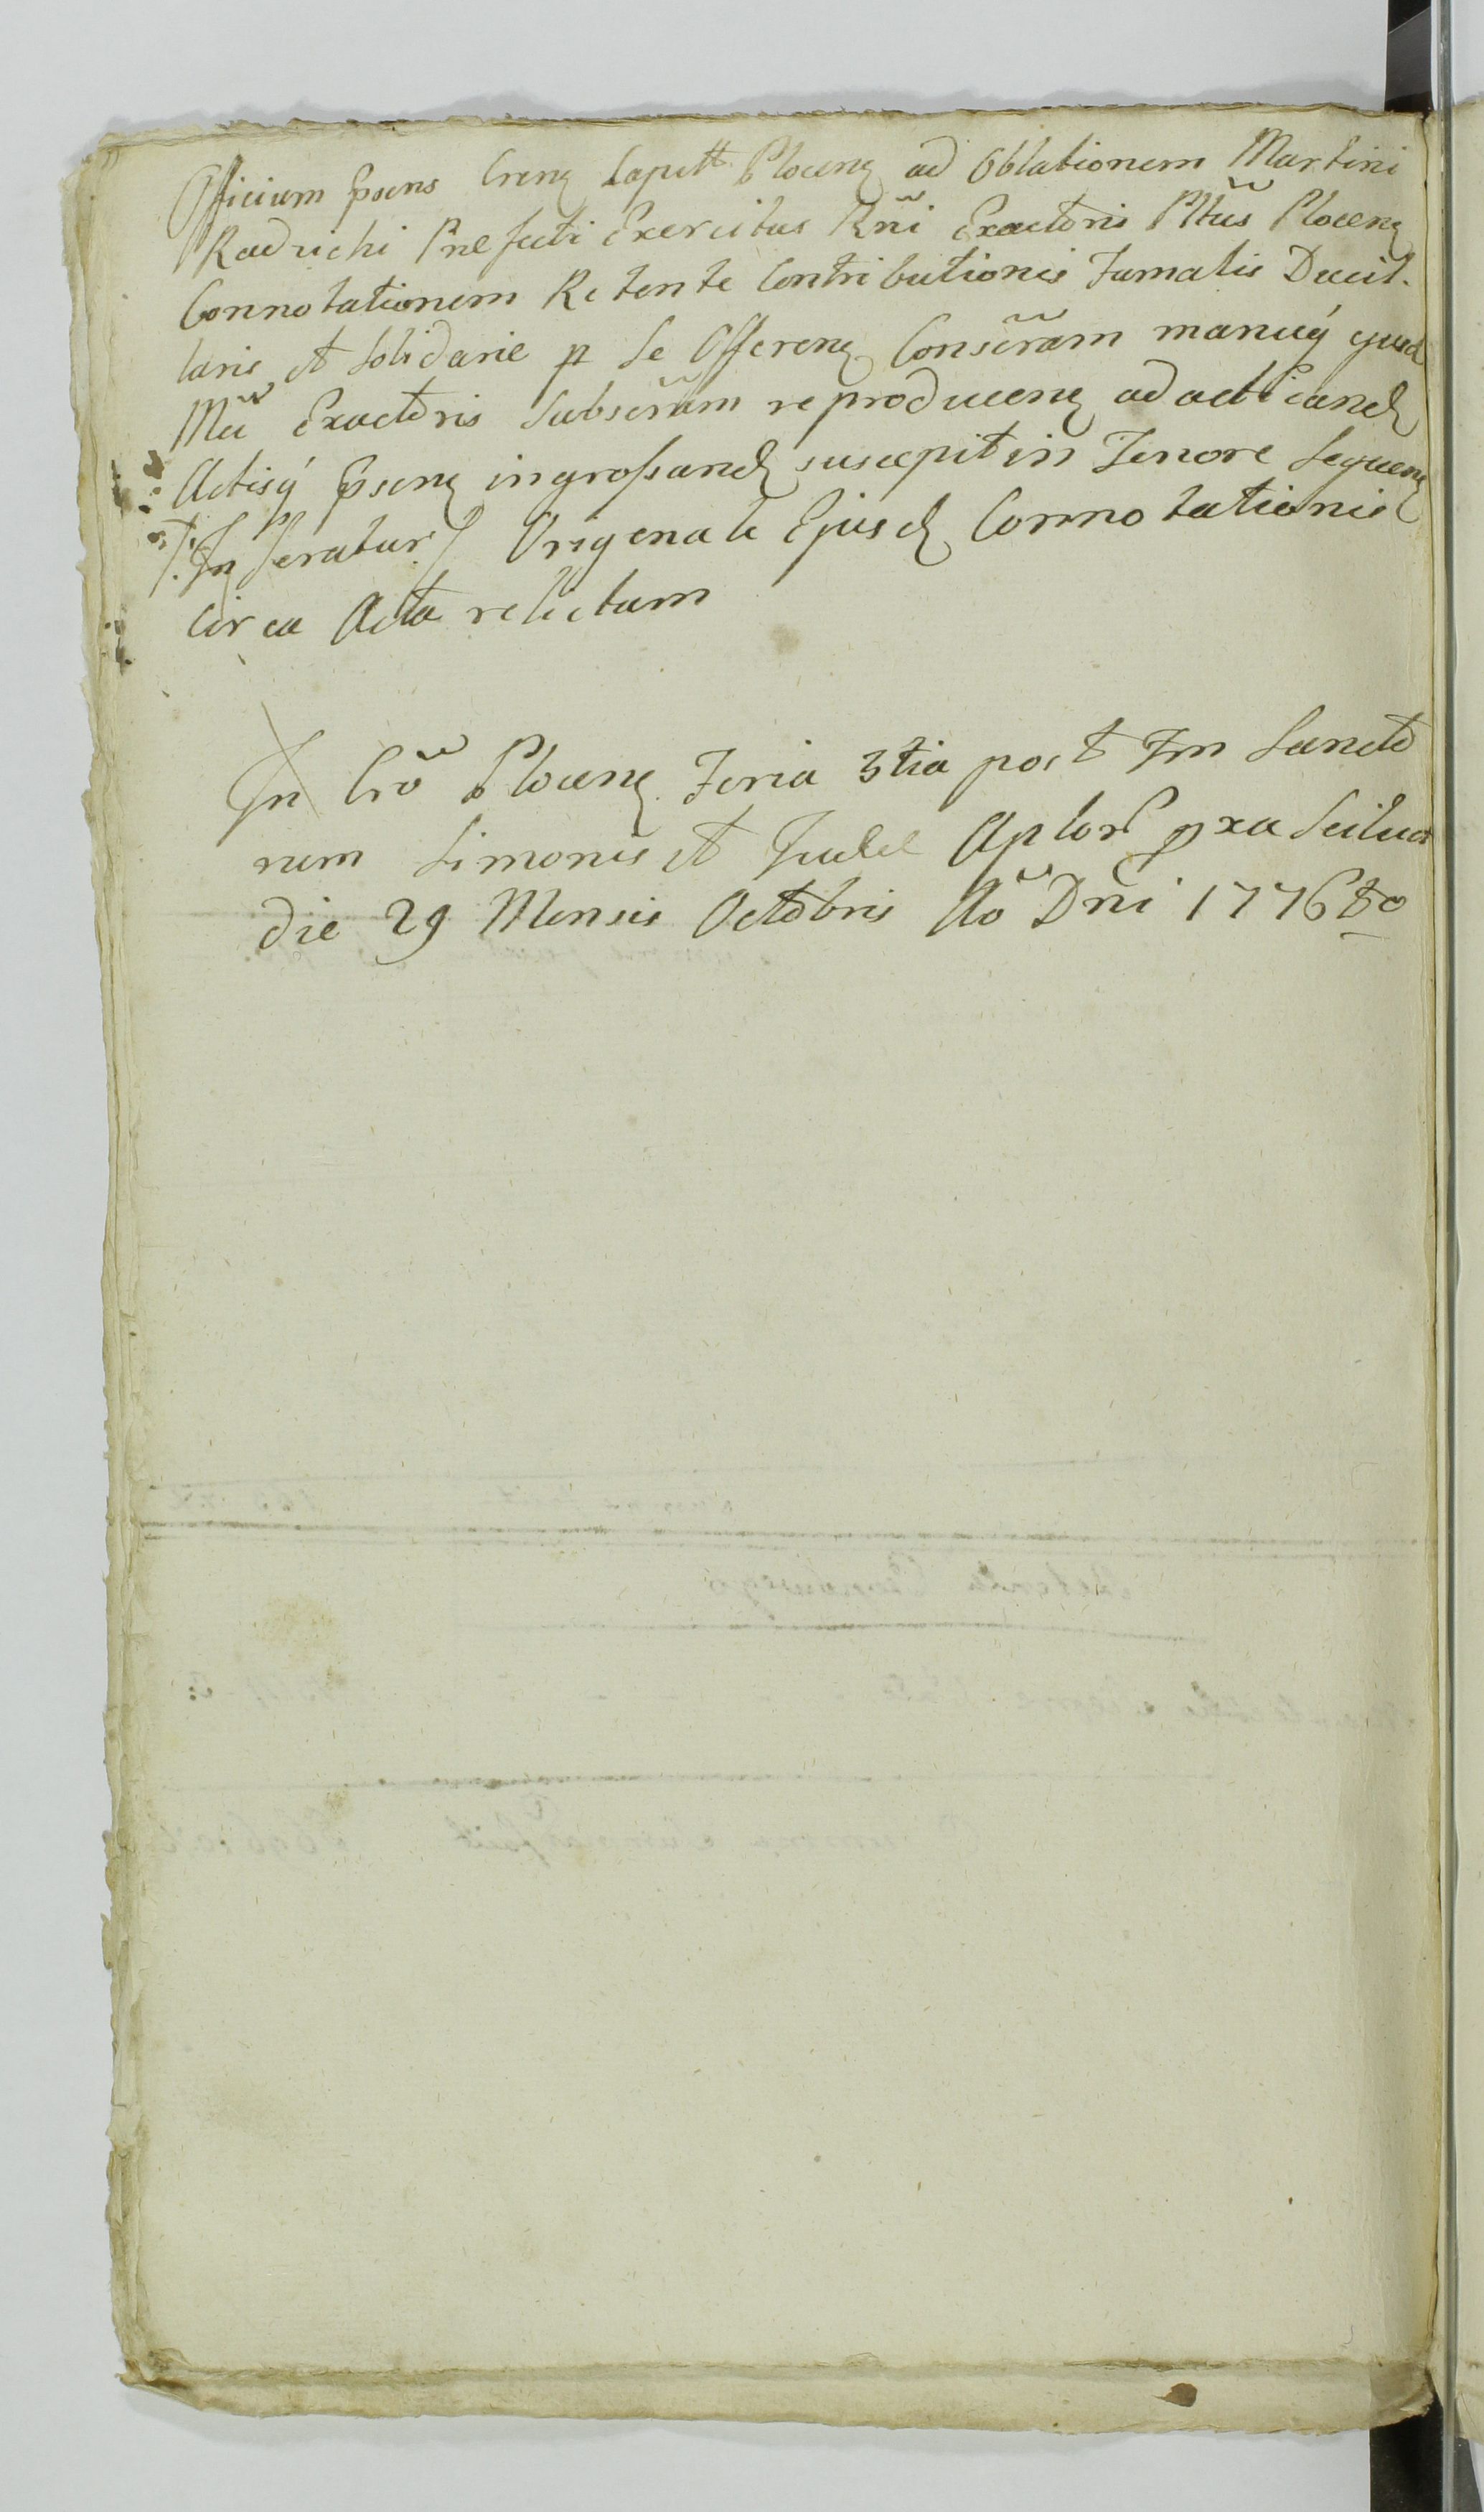 Officium Psens Crens Capitt Plocens ad Oblationem Martini
Radzichi Prefecti Exercitus Rñi Exactoris Pltũs Plocens
Connotationem Retente Contributionis Fumalis Ducil.
laris et Solidarie p Se Offerens Conscrãm manuq ejusd
Mci Exactoris Subscrãm reproducens ad acticand
Actisq Psens ingrossand suscepit in Tenore Sequens
/: Inseratur :/ Originale Ejusd Connotationis
circa Acta relictum
In Crõ Plocens Feria 3tia post Fm Sancto
rum Simonis et Judae Aplor pxa Scilicet
die 29 Mensis Octobris Aõ Dñi 1776to